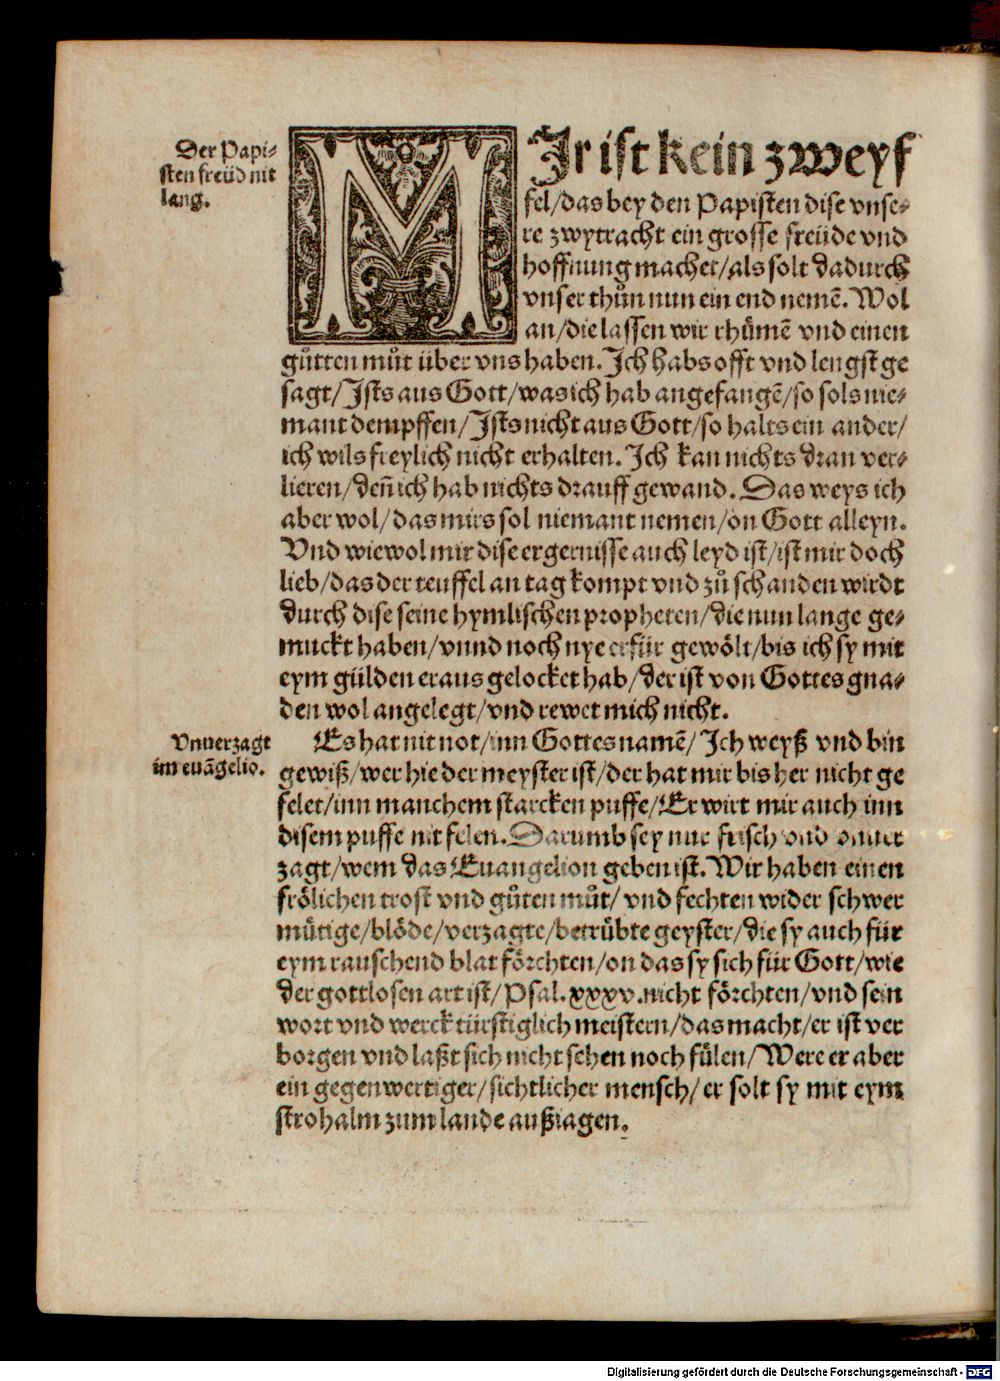 Der Papi-
sten freüd nit
lang.
MIr ist kein zweyf
fel/das bey den Papisten dise vnse-
re zwytracht ein grosse freüde vnd
hoffnung machet/als solt dadurch
vnser thůn nun ein end nemē. Wol
an/die lassen wir rhümē vnd einen
gůtten můt über vns haben. Ich habs offt vnd lengst ge
sagt/Ists aus Gott/was ich hab angefangē/so sols nie-
mant dempffen/Ists nicht aus Gott/so halts ein ander/
ich wils freylich nicht erhalten. Ich kan nichts dran ver-
lieren/deñ ich hab nichts drauff gewand. Das weys ich
aber wol/das mirs sol niemant nemen/on Gott alleyn.
Vnd wiewol mir dise ergernisse auch leyd ist/ist mir doch
lieb/das der teuffel an tag kompt vnd zů schanden wirdt
durch dise seine hymlischen propheten/die nun lange ge-
muckt haben/vnnd noch nye erfür gewölt/bis ich sy mit
eym gülden eraus gelocket hab/der ist von Gottes gna-
den wol angelegt/vnd rewet mich nicht.
Vnuerzagt
im euāgelio.
Es hat nit not/inn Gottes namē/Ich weyß vnd bin
gewiß/wer hie der meyster ist/der hat mir bis her nicht ge
felet/inn manchem starcken puffe/Er wirt mir auch inn
disem puffe nit felen. Darumb sey nur frisch vnd vnuer
zagt/wem das Euangelion geben ist. Wir haben einen
frölichen trost vnd gůten můt/vnd fechten wider schwer
mütige/blöde/verzagte/betrübte geyster/die sy auch für
eym rauschend blat förchten/on das sy sich für Gott/wie
der gottlosen art ist/Psal. xxxv. nicht förchten/vnd sein
wort vnd werck türstiglich meistern/das macht/er ist ver
borgen vnd laßt sich nicht sehen noch fülen/Were er aber
ein gegenwertiger/sichtlicher mensch/er solt sy mit eym
strohalm zum lande außiagen.
Digitalisierung gefördert durch die Deutsche Forschungsgemeinschaft - DFG